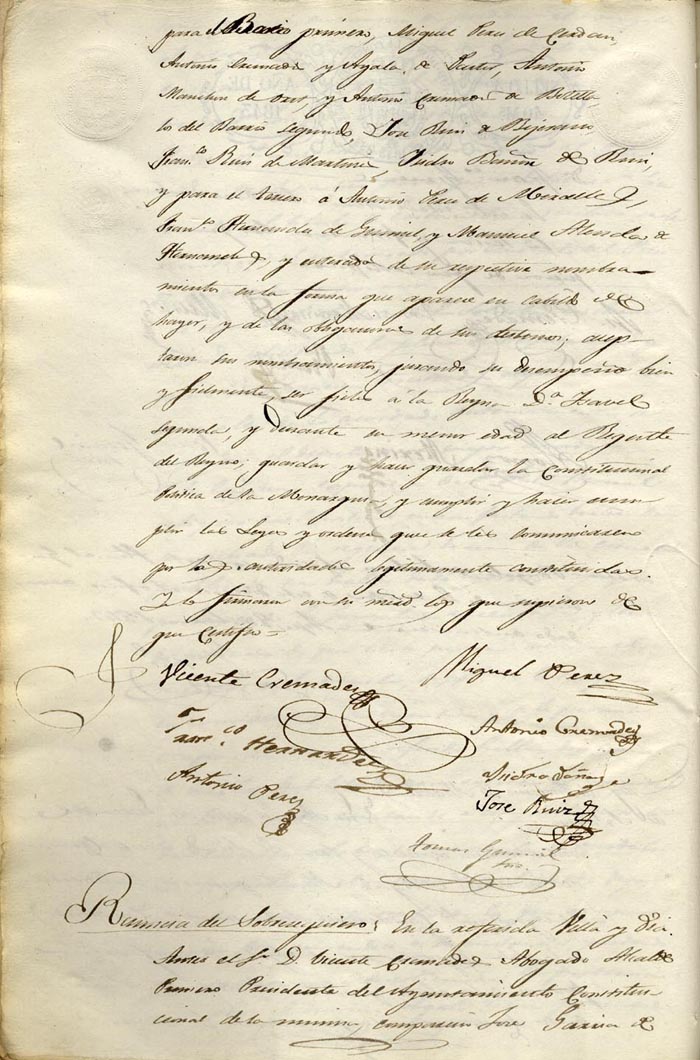 para el Barrio primero, Miguel Perez de Cerdan,
Antonio Cremades y Ayala, de Antonio
y Antonio Cremades de
los del Barrio segundo, Jose Ruiz de Bejarano
Fran.co Ruiz de Martinez, Isidro de Ruiz,
y para el tercero á Antonio Perez de Miralles,
Fran.co Hernandez de y Manuel de
Hernandez, y enterados de su respectivo nombra-
miento en la forma que aparece en cabildo de
hayer, y de las obligaciones de sus destinos; acep-
taron su nombramiento, jurando su desempeño bien
y fielmente, ser fieles á la Reyna D.a Isavel
segunda, y durante su menor edad al Regente
del Reyno; guardar y hacer guardar la Constitucional
Politica de la Monarquia, y cumplir y hacer cum-
plir las Leyes y ordenes que se les comunicasen
por las autoridades legitimamente constituidas.
Y lo firmaron con su mrd. los que supieron de
que certifico=
Vicente Cremades
Miguel Perez
Antonio Cremades
Franc.co Hernandez
Isidro
Antonio Perez
Jose Ruiz
Tomas
Renuncia del Sobrequiero: En la referida Villa y dia.
Antes el S.r D. Vicente Cremades Abogado Alcalde
Primero Presidente del Ayuntamiento Constitu-
cional de la misma, comparecio Jose Garcia de